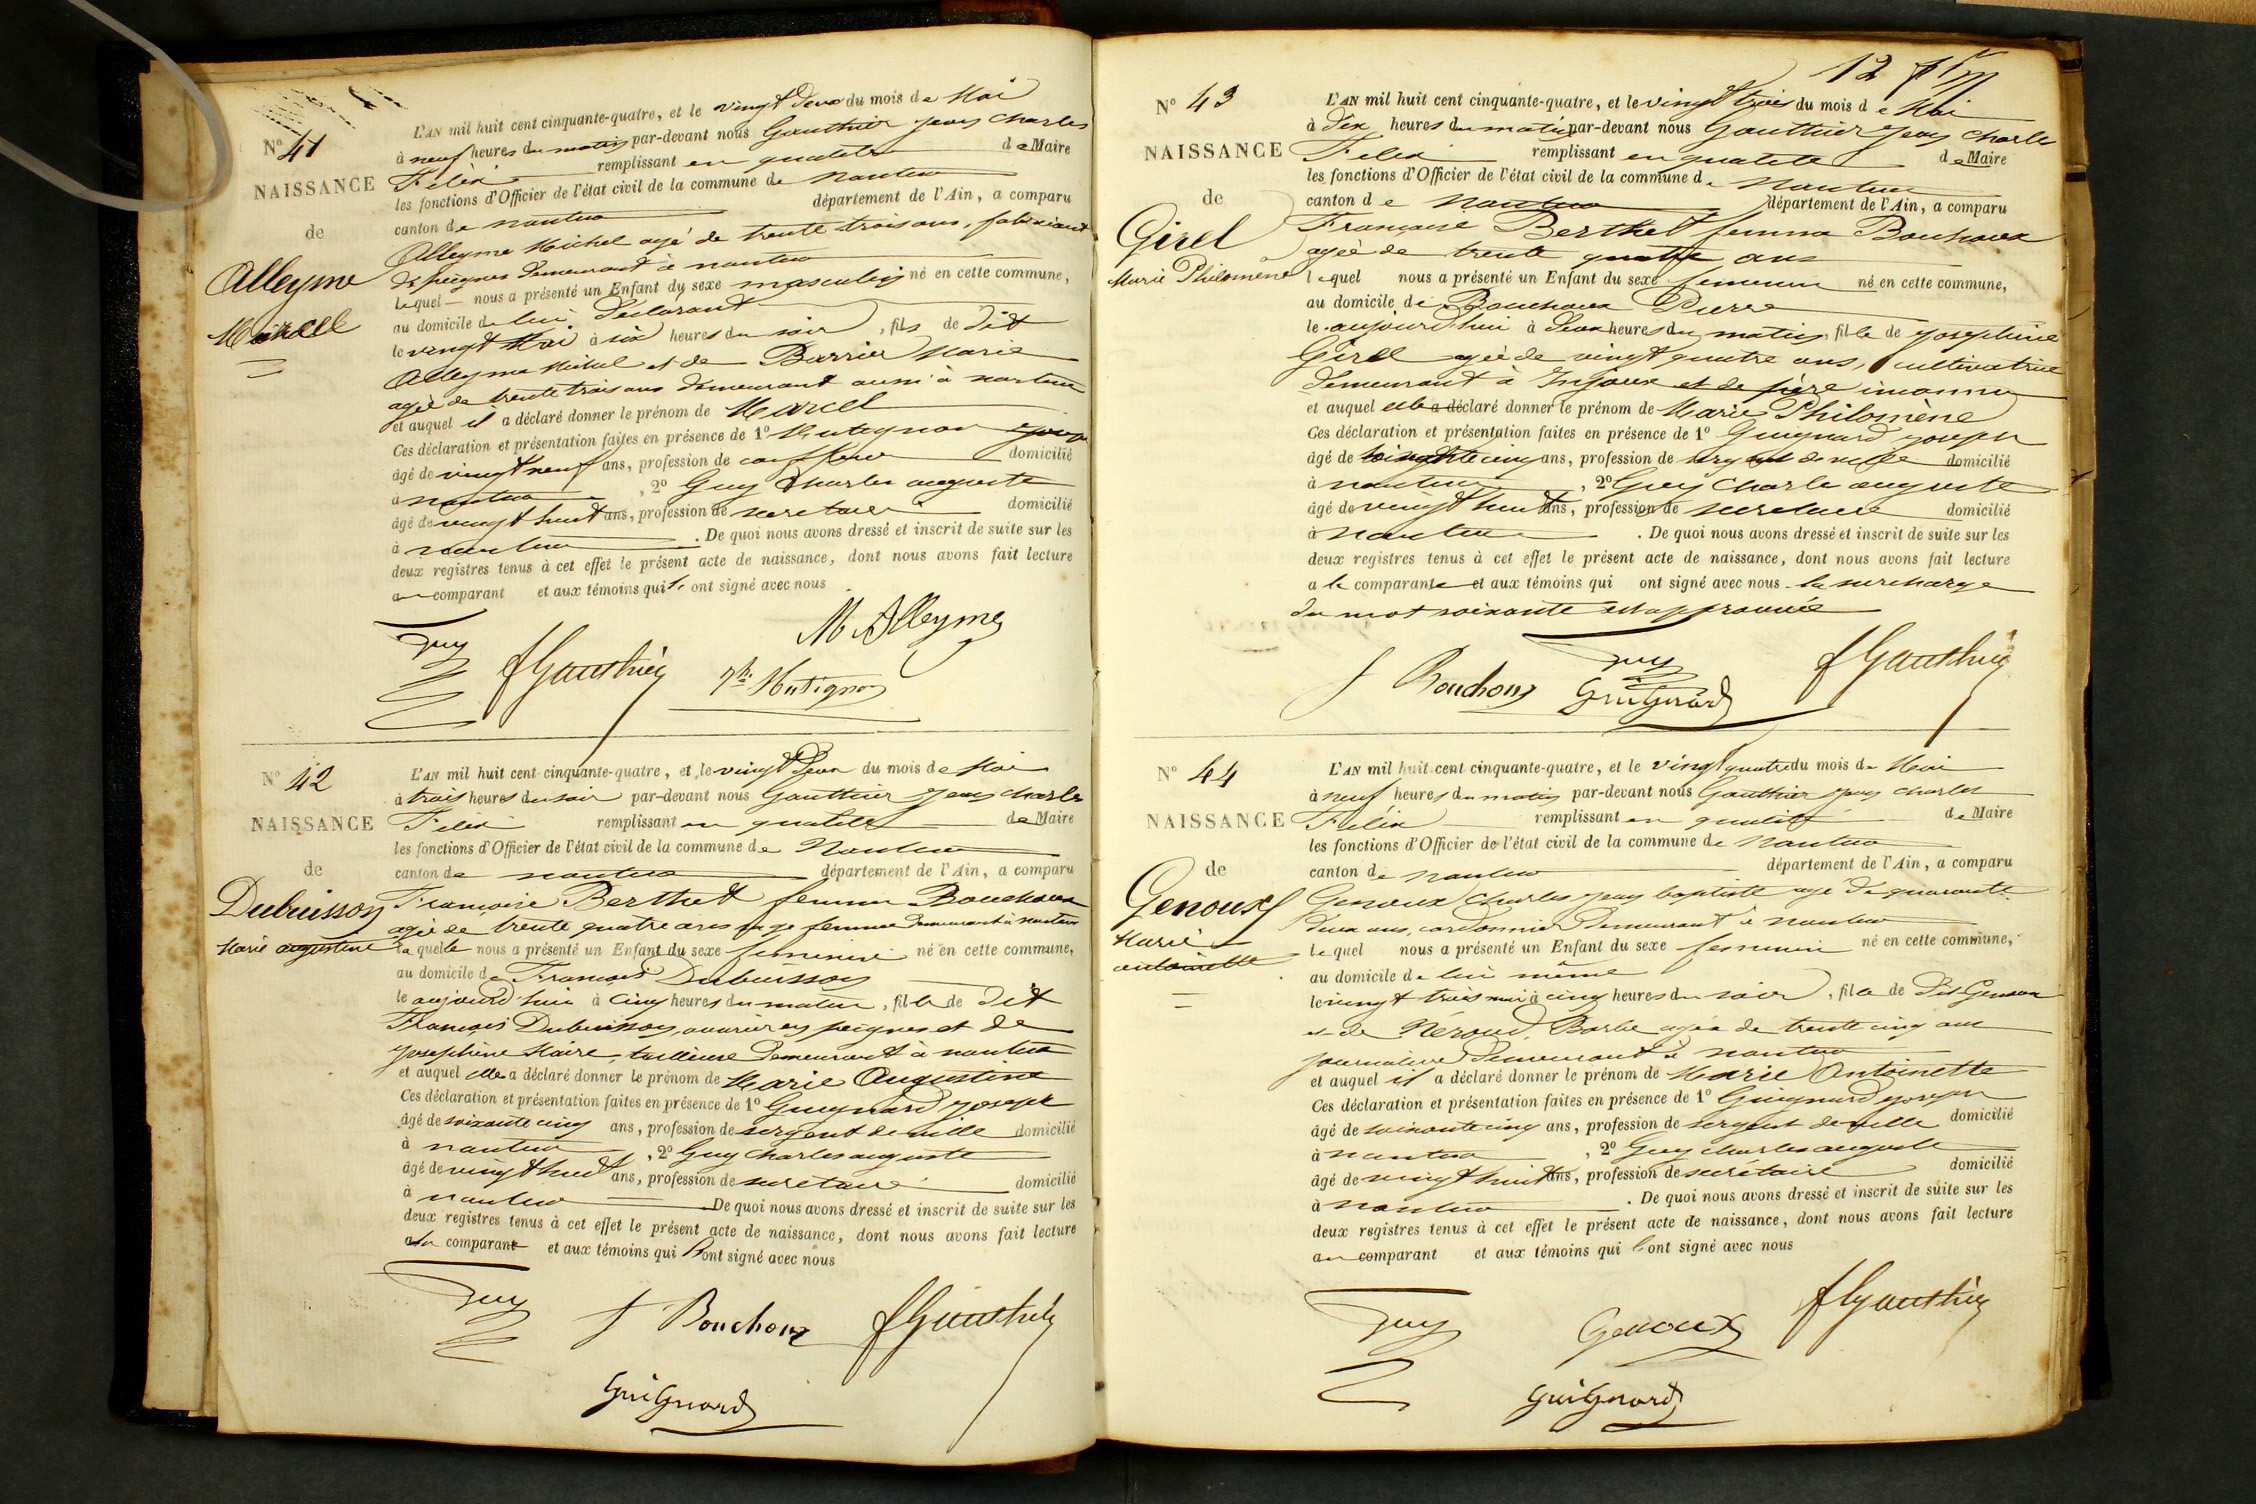 N° 41
NAISSANCE
de
Alleyme
Marcel
L'AN mil huit cent cinquante-quatre, et le vingt deux du mois de Mai
à neuf heures du matin par-devant nous Gauthier Jean Charles
Félix remplissant en qualité de Maire
les fonctions d'Officier de l'état civil de la commune de Nantua
canton de nantua département de l'Ain, a comparu
Alleyme Michel agé de trente trois ans, fabricant
de peignes demeurant à nantua
lequel nous a présenté un Enfant du sexe masculin né en cette commune,
au domicile de lui déclarant
le vingt Mai à six heures du soir, fils de dit
Alleyme Michel et de Barrier Marie
agée de trente trois ans demeurant aussi à nantua
et auquel il a déclaré donner le prénom de Marcel
Ces déclaration et présentation faites en présence de 1°
âgé de vingt neuf ans, profession de coiffeur domicilié
à nantua, 2° Guy Charles auguste
âgé de vingt huit ans, profession de secretaire domicilié
à nantua. De quoi nous avons dressé et inscrit de suite sur les
deux registres tenus à cet effet le présent acte de naissance, dont nous avons fait lecture
au comparant et aux témoins qui ont signé avec nous
M. Alleyme
Guy
f Gauthier
N° 42
NAISSANCE
de
Dubuisson
Marie augustine
L'AN mil huit cent cinquante-quatre, et le vingt deux du mois de Mai
à trois heures du soir par-devant nous Gauthier Jean Charles
Félix remplissant en qualité de Maire
les fonctions d'Officier de l'état civil de la commune de Nantua
canton de nantua département de l'Ain, a comparu
Françoise Berthet femme Bouchoux
agée de trente quatre ans sage femme demeurant à nantua
laquelle nous a présenté un Enfant du sexe feminin né en cette commune,
au domicile de François Dubuisson
le aujourd'hui à cinq heures du matin, fille de dit
François Dubuisson, ouvrier en peignes et de
Josephine Maire, tailleuse demeurant à nantua
et auquel elle a déclaré donner le prénom de Marie Augustine
Ces déclaration et présentation faites en présence de 1° Guignard Joseph
âgé de soixante cinq ans, profession de sergent de ville domicilié
à nantua, 2° Guy Charles auguste
âgé de vingt huit ans, profession de secretaire domicilié
à nantua De quoi nous avons dressé et inscrit de suite sur les
deux registres tenus à cet effet le présent acte de naissance, dont nous avons fait lecture
comparante et aux témoins qui ont signé avec nous
Guy
f Bouchoux
f Gauthier
Guignard
12
N° 43
NAISSANCE
de
Girel
Marie Philomène
L'AN mil huit cent cinquante-quatre, et le vingt trois du mois de Mai
à dix heures du matin par-devant nous Gauthier Jean Charle
Felix remplissant en qualité de Maire
les fonctions d'Officier de l'état civil de la commune de Nantua
canton de Nantua département de l'Ain, a comparu
Françoise Berthet femme Bouchoux
agée de trente quatre ans
lequel nous a présenté un Enfant du sexe feminin né en cette commune,
au domicile de Bouchoux Pierre
le aujourd'hui à deux heures du matin, fille de Josephine
Girel agée de vingt quatre ans, cultivatrice
demeurant à Injoux et de père inconnu
et auquel elle a déclaré donner le prénom de Marie Philomène
Ces déclaration et présentation faites en présence de 1° Guignard Joseph
âgé de soixante cinq ans, profession de sergent de ville domicilié
à nantua, 2° Guy Charle auguste
âgé de vingt huit ans, profession de secretaire domicilié
à nantua. De quoi nous avons dressé et inscrit de suite sur les
deux registres tenus à cet effet le présent acte de naissance, dont nous avons fait lecture
a la comparante et aux témoins qui ont signé avec nous la surcharge
du mot soixante est approuvée
f Bouchoux
Guy
Guignard
f Gauthier
N° 44
NAISSANCE
de
Genoux
Marie
antoinette
L'AN mil huit cent cinquante-quatre, et le vingt quatre du mois de Mai
à neuf heures du matin par-devant nous Gauthier Jean Charles
Félix remplissant en qualité de Maire
les fonctions d'Officier de l'état civil de la commune de Nantua
canton de nantua département de l'Ain, a comparu
Genoux Charles Jean baptiste agé de quarante
deux ans, cordonnier demeurant à nantua
lequel nous a présenté un Enfant du sexe feminin né en cette commune,
au domicile de lui même
le vingt trois mai à cinq heures du soir, fille de dit Genoux
et de Néroud Barbe agée de trente cinq ans
journalière demeurant à nantua
et auquel il a déclaré donner le prénom de Marie Antoinette
Ces déclaration et présentation faites en présence de 1° Guignard Joseph
âgé de soixante cinq ans, profession de sergent de ville domicilié
à nantua, 2° Guy Charles auguste
âgé de vingt huit ans, profession de secrétaire domicilié
à nantua. De quoi nous avons dressé et inscrit de suite sur les
deux registres tenus à cet effet le présent acte de naissance, dont nous avons fait lecture
au comparant et aux témoins qui ont signé avec nous
Guy
Genoux
f Gauthier
Guignard